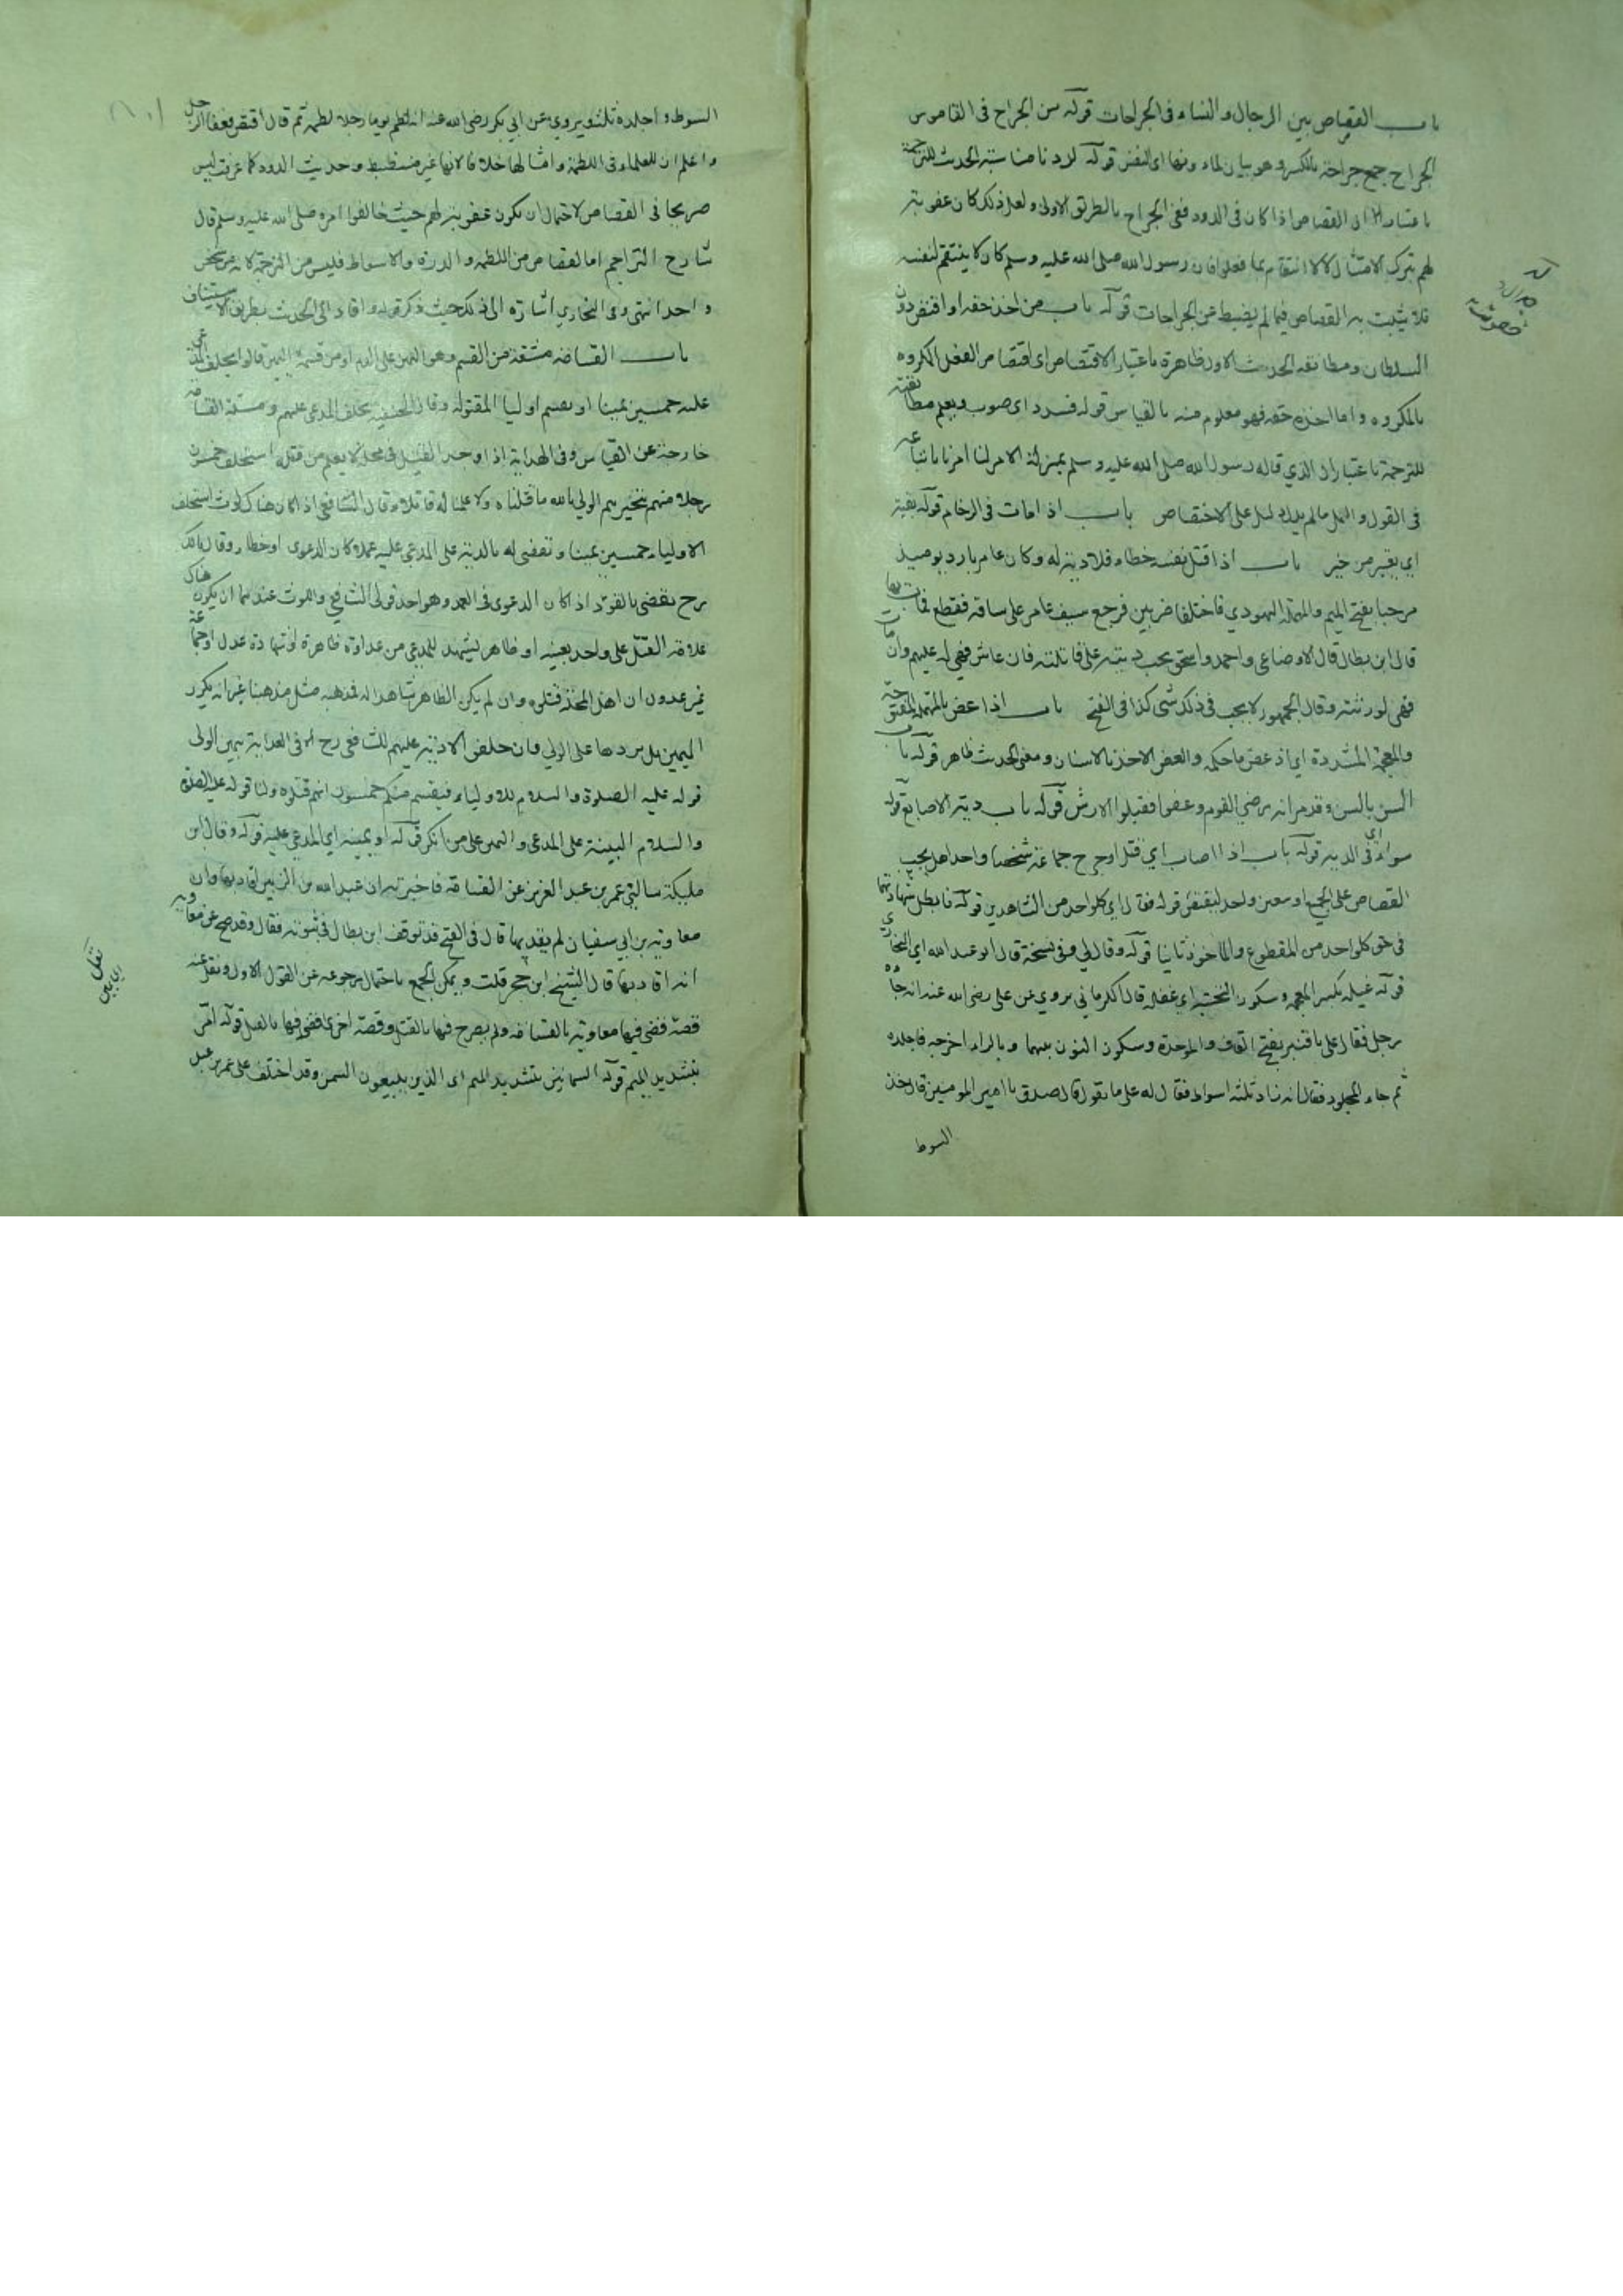 باب القصاص بين الرجال والنساء فى الجراحات قوله من الجراح فى القاموس
الجراح جمع جراحة بالكسر وهو بيان لماء دونها اى النفس قوله لددنا مناسبة الحديث للترجمة
باعتبار ان القصاص اذا كان فى اللدود ففى الجراح بالطريق الاولى ولعل ذلك كان عقوبة
لهم بترك الامتثال لا لانتقام بما فعلوا فان رسول الله صلى الله عليه وسلم كان لا ينتقم لنفسه
فلا يثبت به القصاص فيما لم يضبط من الجراحات قوله باب من اخذ حقه او اقتص دون
السلطان ومطابقة الحديث الاول ظاهرة باعتبار الاقتصاص اى اقتصاص الفعل المكروه
بالمكروه واما اخذه حقه فهو معلوم منه بالقياس قوله فسدد اى صوب ويعلم مطابقته
للترجمة باعتبار ان الذي قاله رسول الله صلى الله عليه وسلم بمنزلة الامر لنا امرنا باتباعه
فى القول والعمل مالم يدل دليل على الاختصاص باب اذا مات فى الزحام قوله بقية
اي بقية من خير باب اذا قتل نفسه خطاء فلا دية له وكان عامر بارد يومئذ
مرحبا بفتح الميم والمهملة اليهودي فاختلفا ضربين فرجع سيف عامر على ساقه فقطع فمات بها
قال ابن بطال قال الاوضاعى واحمد واسحق يجب ديته على عاقلته فان عاش فهي له عليهم وان مات
فهي لورثته وقال الجمهور لا يجب فى ذلك شى كذا فى الفتح باب اذا عض بالمهملة المفتوحة
والمعجمة المشددة اي اذ عض باحكمه والعض الاخذ بالاسنان ومعنى الحديث ظاهر قوله باب
السن بالسن وقد مر انه رضي القوم وعفوا فقبلوا الارش قوله باب دية الاصابع قوله
سواء اي فى الدية قوله باب اذا اصاب اي قتل او جرح جماعة شخصا واحدا هل يجب
القصاص على الجميع او معين واحد ليقتص قوله فقال اي كل واحد من الشاهدين قوله فابطل شهادتهما
فى حق كل واحد من المقطوع والماخوذ ثانيا قوله وقال لي وفى نسخة قال ابو عبد الله اي البخاري
قوله غيلة بكسر المعجمة وسكون التحتية اي غفلة قال الكرماني يروي عن على رضى الله عنه انه جاءه
رجل فقال على يا قنبر بفتح القاف والموحدة وسكون النون بينهما وبالراء اخرجه فاجلده
ثم جاء المجلود فقال انه زاد ثلثة اسواط فقال له على ما تقول قال صدق يا امير المومنين قال خذ
السوط
السوط واجلده ثلثة ويروي عن ابي بكر رضى الله عنه انه لطم يوما رجلا لطمة ثم قال اقتص فعفا الرجل
واعلم ان للعلماء فى اللطمة وامثالها خلافا لانها غير منضبط وحديث اللدود كما عرفت ليس
صريحا فى القصاص لاحتمال ان يكون عقوبة لهم حيث خالفوا امره صلى الله عليه وسلم قال
شارح التراجم اما القصاص من اللطمة والدرة والاسواط فليس من الترجمة لانه من شخص
واحد انتهى وفى البخاري اشارة الى ذلك حيث ذكر قوله واقاد الى الحديث بطريق الاستيناف
باب القسامة مشتقة من القسم وهو اليمين على الدم او من قسمة اليمين قالوا يحلف المدعى
عليه خمسين يمينا او يقسم اوليا المقتول وقال الحنفية يحلف المدعى عليهم ومسئلة القسامة
خارجة عن القياس وفى الهداية اذا وجد القتيل فى محلة لا يعلم من قتله استحلف خمسون
رجلا منهم يتخيرهم الولي بالله ما قتلناه ولا علمنا له قاتلا وقال الشافعي اذا كان هناك لوث استحلف
الاولياء خمسين يمينا ويقضى له بالدية على المدعى عليه عمدا كان الدعوى او خطا وقال مالك
رح يقضى بالقود اذا كان الدعوى فى العمد وهو احد قولى الشافعي واللوث عندهما ان يكون هناك
علامة القتل على واحد بعينه او ظاهر يشهد للمدعي من عداوة ظاهرة او شهادة عدل او جماعة
غير عدول ان اهل المحلة قتلوه وان لم يكن الظاهر شاهدا له فمذهبه مثل مذهبنا غير انه يكرر
اليمين بل يردها على الولي فان حلفوا لا دية عليهم للشافعى رح فى البداية بيمين الولى
قوله عليه الصلوة والسلام للاولياء فيقسم منكم خمسون انهم قتلوه ولنا قوله عليه الصلوة
والسلام البينة على المدعى واليمين على من انكر قوله او يمينه اي المدعى عليه قوله وقال ابن
مليكة سالني عمر بن عبد العزيز عن القسامة فاخبرته ان عبد الله بن الزبير اقاد بها وان
معاوية بن ابي سفيان لم يقد بها قال فى الفتح قد توقف ابن بطال فى ثبوته فقال وقد صح عن معاوية
انه اقاد بها قال الشيخ ابن حجر قلت ويمكن الجمع باحتمال رجوعه عن القول الاول ونقل عنه
قصة فقضى فيها معاوية بالقسامة ولم يصرح فيها بالقتل وقصة اخرى قضى فيها بالقتل قوله امر
بتشديد الميم قوله السمانين بتشديد الميم اى الذين يبيعون السمن وقد اختلف على عمر بن عبد